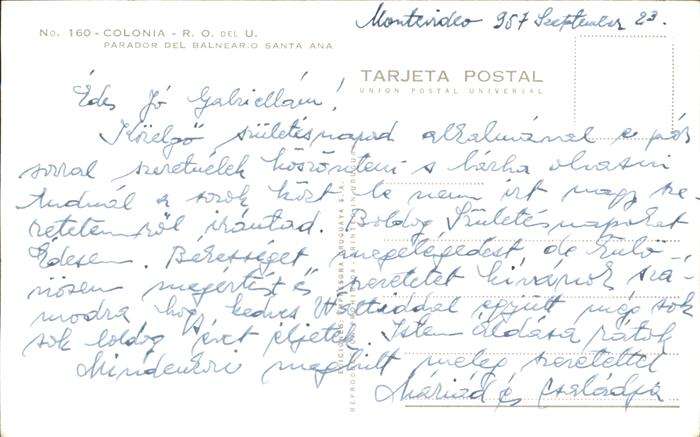 Montevideo 957 Szeptember 23.
No. 160 - COLONIA - R. O. DEL U.
PARADOR DEL BALNEARIO SANTA ANA
TARJETA POSTAL
UNION POSTAL UNIVERSAL
Édes Jó Gabriellám!
Közelgő születésnapod alkalmával e pár
sorral szeretnélek köszönteni s bárha olvasni
tudnál a sorok közt le nem írt nagy sze-
retetemről irántad. Boldog Születésnapokat
Édesem. Békességet megelégedést de külö-
nösen megértést és szeretetet kívánok szá-
modra hogy kedves együtt még sok
sok boldog évet éljetek. Isten áldása rátok
Mindenkori meghitt meleg szeretettel
Máriád és Családja